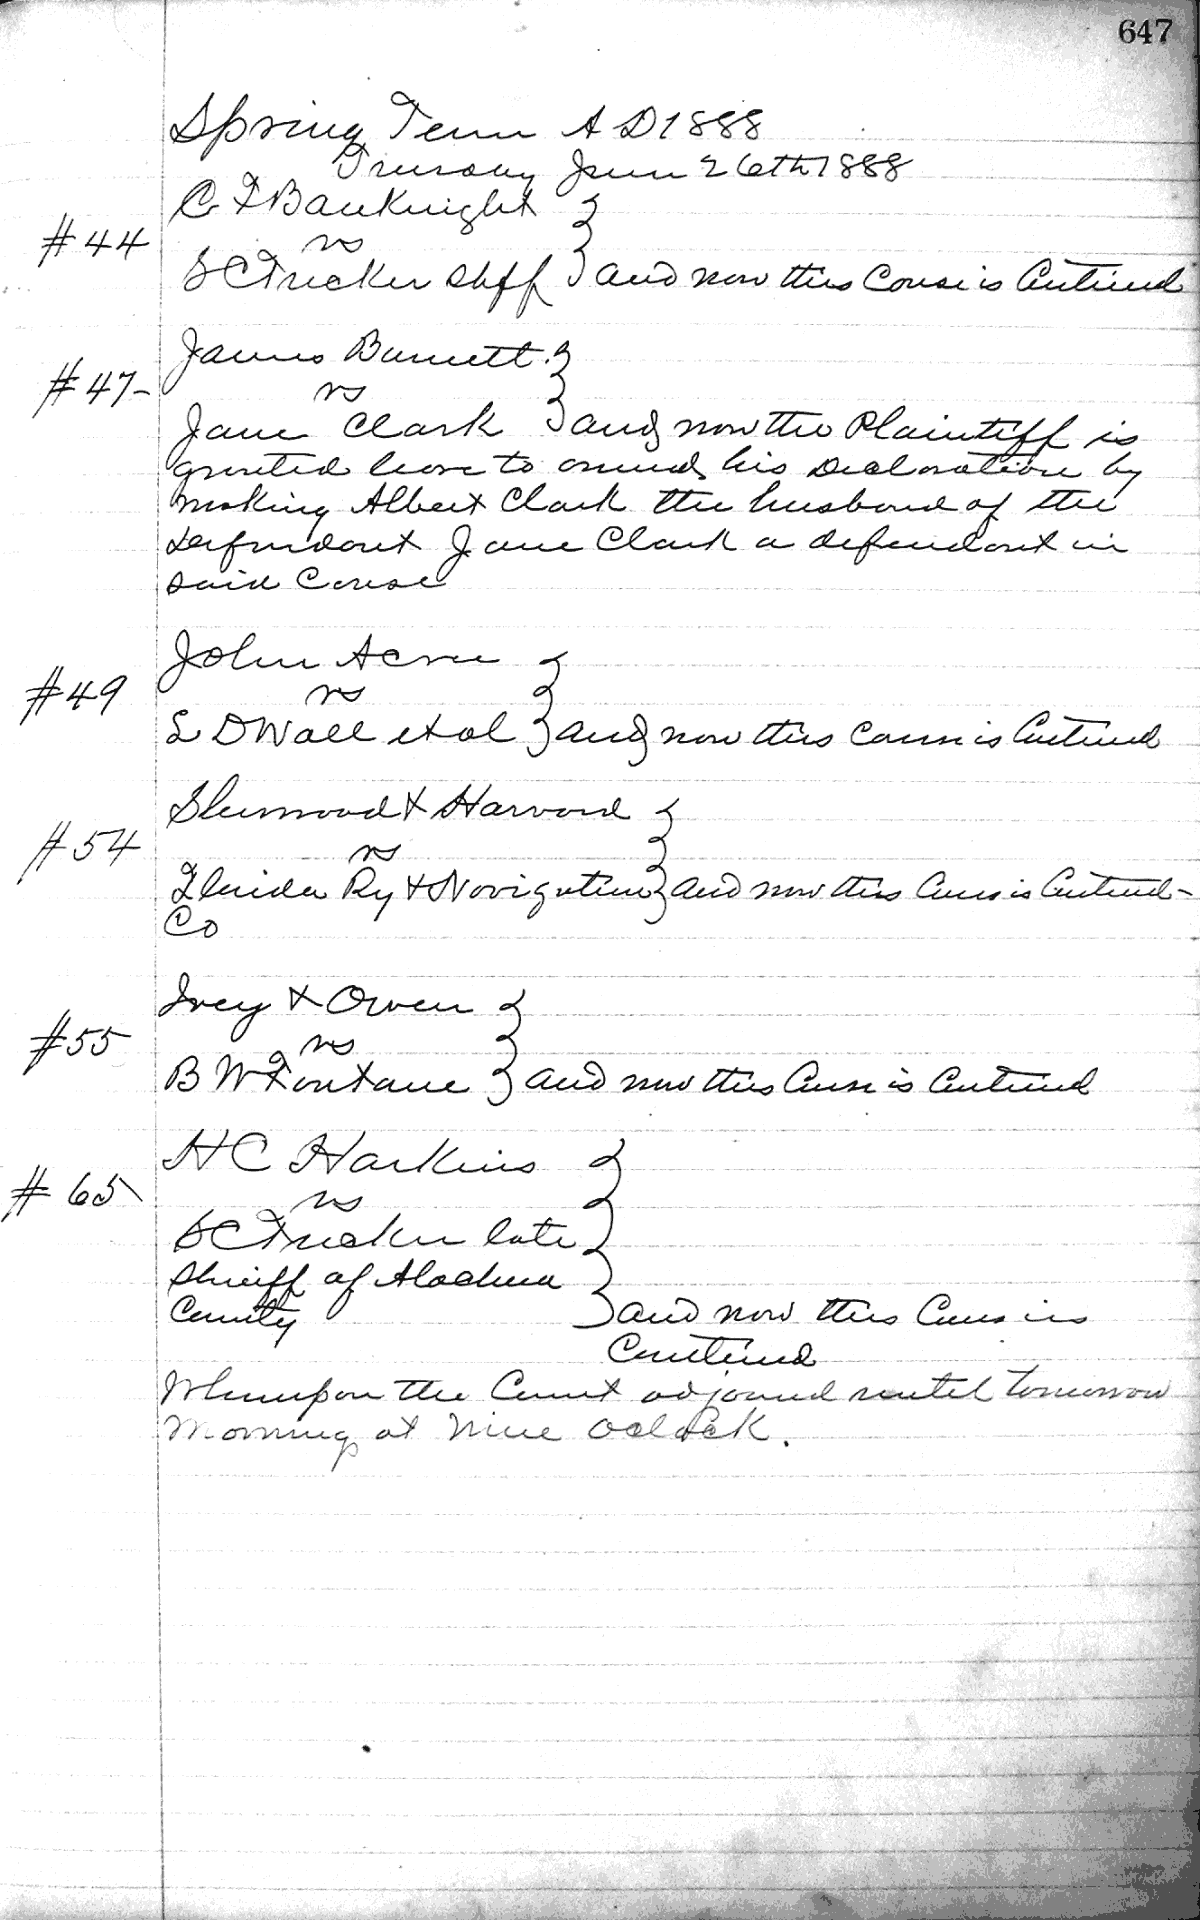 647
Spring Term A D 1888
Thursday June 26th 1888
C F Bauknight
#44 vs
S C Tucker Shff and now this Cause is Continued
James Burnett
#47- vs
Jane Clark and now the Plaintiff is
granted leave to amend his Declaration by
making Albert Clark the husband of the
Defendant Jane Clark a defendant in
said Cause
John Acree
#49 vs
L D Wall et al and now this Cause is Continued
Sherwood & Harvard
#54 vs
Florida Ry & Navigation and now this Cause is Continued-
Co
Ivey & Owen
#55 vs
B W Fontane and now this Cause is Continued
H C Harkins
#65 vs
S C Tucker late
Sheriff of Alachua
County and now this Cause is
Continued
Whereupon the Court adjourned until tomorrow
Morning at Nine Oclock.